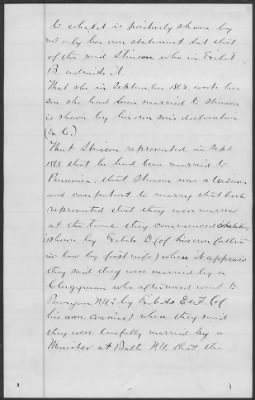 to what it is positively shown by
not only her own statement but that
of the said Stinson who in Exhibit
B admits it.
That she in September 1868 wrote her
son she had been married to Stinson
is shown by her own son's declaration
(Ex C.)
That Stinson represented in Sept
1868 that he had been married to
that Stinson was a
and competent to marry that both
represented that they were married
at the time they commenced
is shown by Exhibit D (of his own father
in law by first wife) when it appears
they said they were married by a
Clergyman who afterward went to
by Exhibits E & F (of
his own cousins) when they said
they were lawfully married by a
Minister at that the